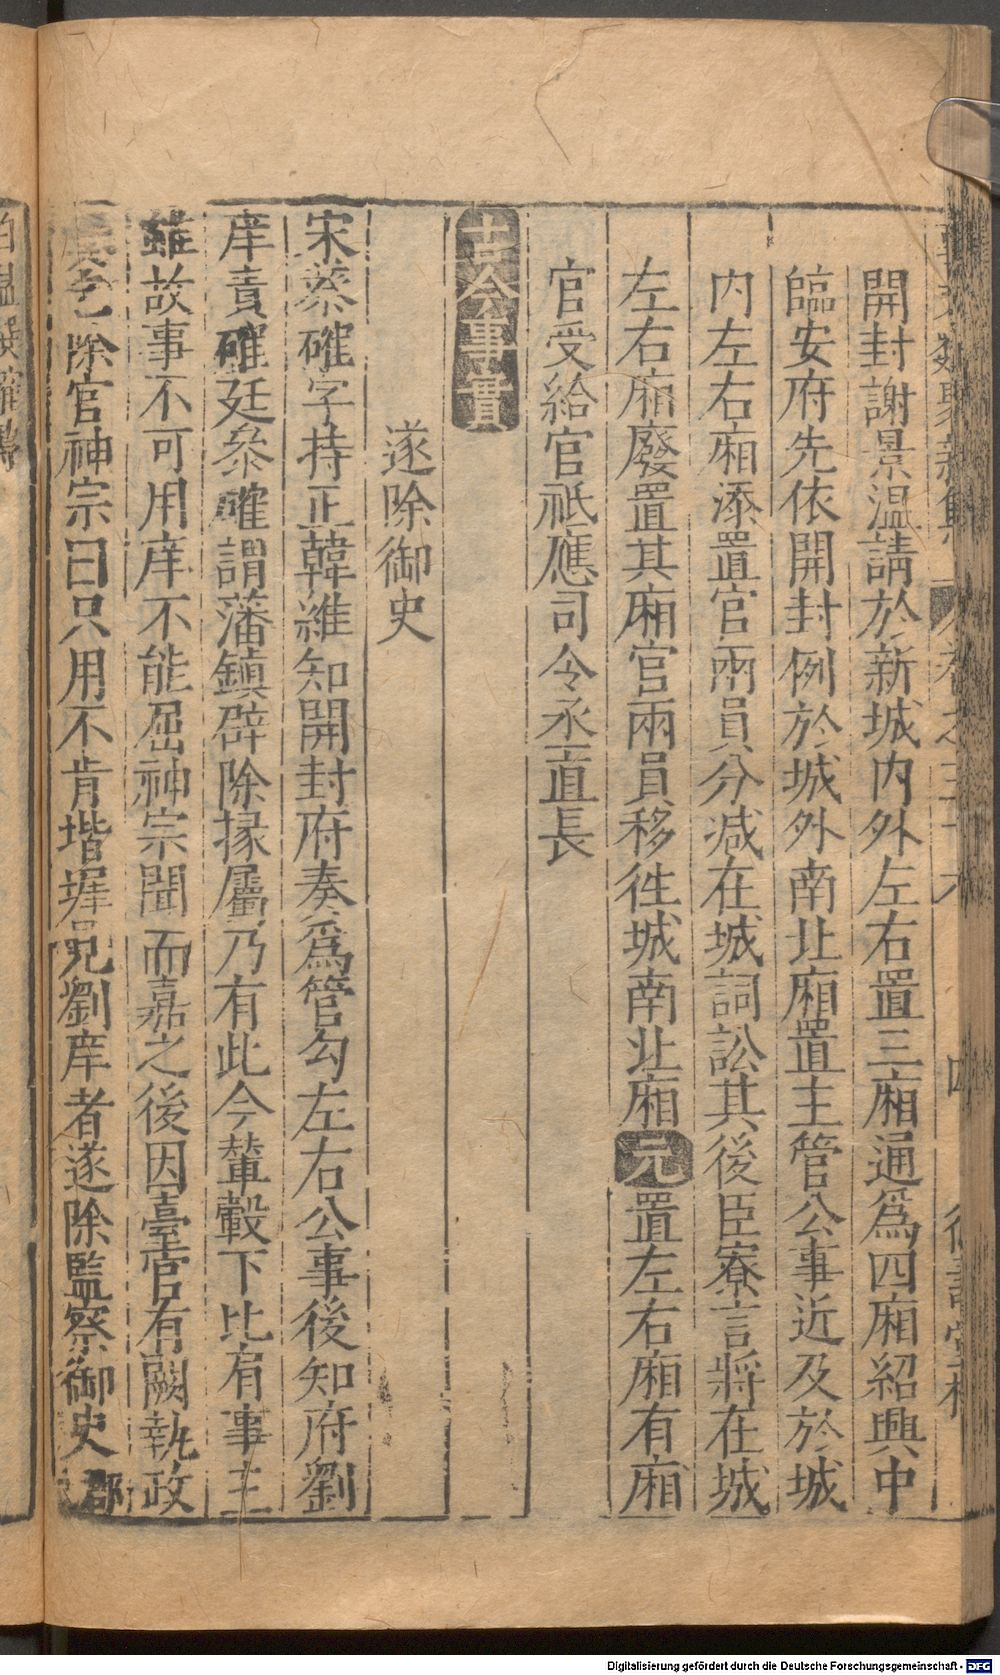 開封謝景温請於新城内外左右置三廂通爲四廂紹興中
臨安府先依開封例於城外南北廂置主管公事近及於城
内左右廂添置官兩員分减在城詞訟其後臣寮言將在城
左右廂廢置其廂官兩員移徃城南北廂元置左右廂有廂
官受給官祇應司令丞直長
古今事實
遂除御史
宋蔡確字持正韓維知開封府奏爲管勾左右公事後知府劉
庠責確廷參確謂藩鎮辟除掾屬乃有此今輦轂下比肩事主
雖故事不可用庠不能屈神宗聞而嘉之後因臺官有闕執政
除官神宗曰只用不肯堦墀見劉庠者遂除監察御史
Digitalisierung gefördert durch die Deutsche Forschungsgemeinschaft - DFG